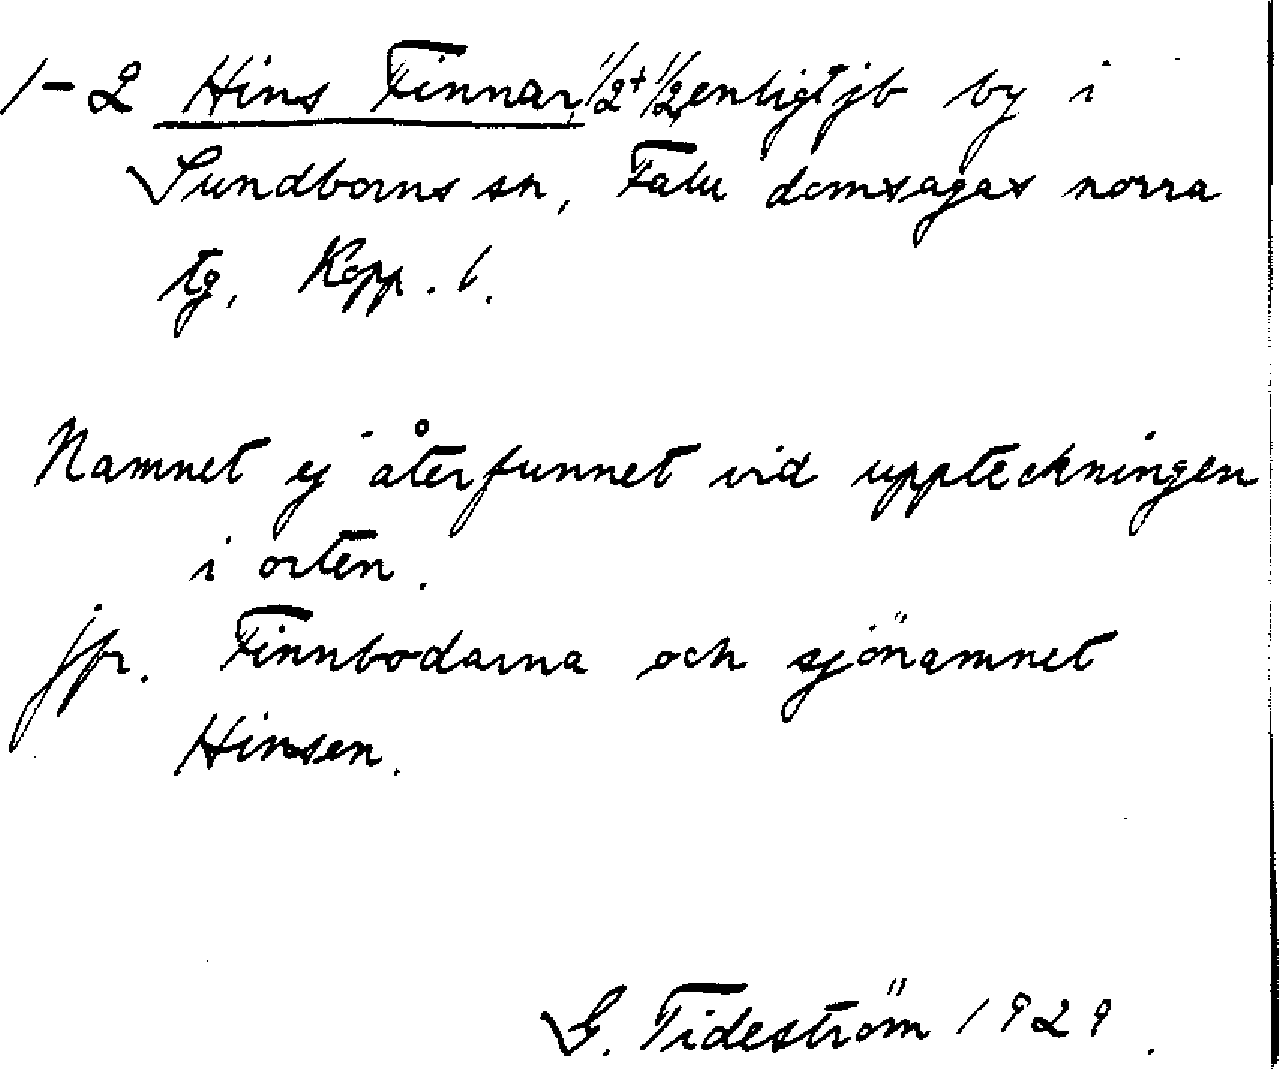 1-2 Hins Finnar, 1/2 + 1/2, enligt jb by i
Sundborns sn, Falu domsagas norra
tg, Kopp. l.
Namnet ej återfunnet vid uppteckningen
i orten.
jfr. Finnbodarna och sjönamnet
Hinsen.
G. Tideström 1929.